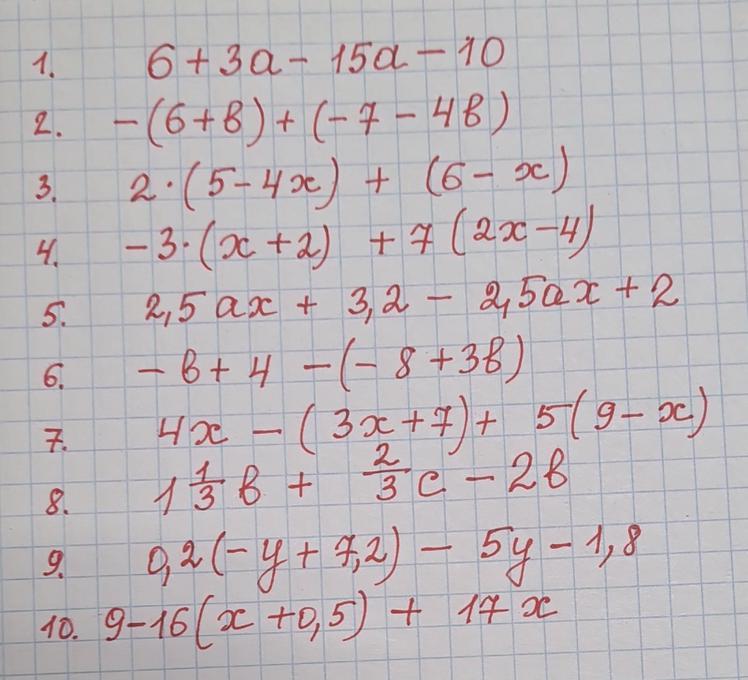 1. 6 + 3a - 15a - 10
2. -(6+в) + (-7 - 4в)
3. 2·(5-4x) + (6-x)
4. -3·(x+2) + 7(2x-4)
5. 2,5ax + 3,2 - 2,5ax + 2
6. -в + 4 -(-8+3в)
7. 4x - (3x+7) + 5(9-x)
8. 1 1/3 в + 2/3 c - 2в
9. 0,2(-y+7,2) - 5y - 1,8
10. 9-16(x+0,5) + 17x